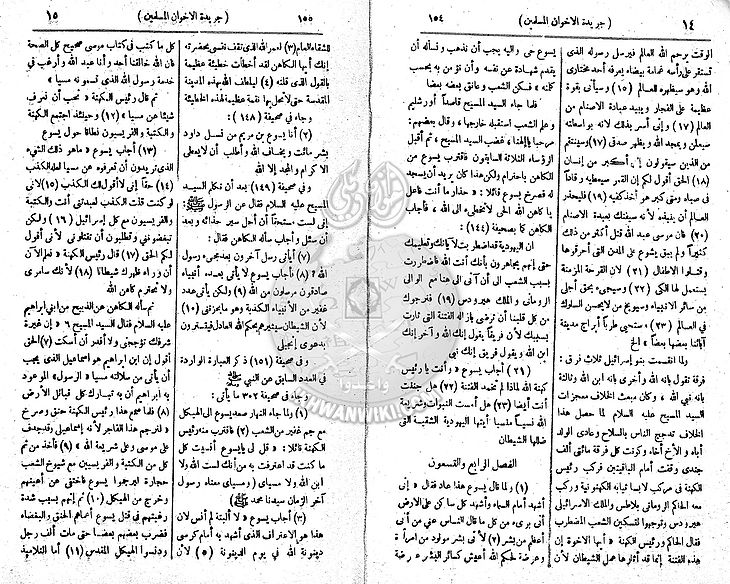 ١٤ ( جريدة الاخوان المسلمين ) ١٥٤
الوقت يرحم الله العالم فيرسل رسوله الذى
تستقر على رأسه غمامة بيضاء يعرفه أحد مختارى
الله وهو سيظهره للعالم (١٥) وسيأتى بقوة
عظيمة على الفجار ويبيد عبادة الاصنام من
العالم (١٧) وإنى أسر بذلك لانه بواسطته
سيعلن ويمجد الله ويظهر صدقى (١٧) وسينتقم
من الذين سيقولون إنى أكبر من إنسان
(١٨) الحق أقول لكم إن القمر سيعطيه رقادا
فى صباه ومتى كبر هو أخذ كفيه (١٩) فليحذر
العالم أن ينبذه لأنه سيفتك بعبدة الاصنام
(٢٠) فان موسى عبد الله قتل أكثر من ذلك
كثيراً ولم يبق يشوع على المدن التى أحرقوها
وقتلوا الاطفال (٢١) لان القرحة المزمنة
يستعمل لها الكى (٢٢) وسيجىء بحق أجلى
من سائر الانبياء وسيوبخ من لا يحسن السلوك
فى العالم (٢٣) ستحيى طرباً أبراج مدينة
آبائنا بعضها بعضاً » الخ
ولما انقسمت بنو إسرائيل ثلاث فرق :
فرقة تقول بانه الله وأخرى بانه ابن الله وثالثة
بانه نبى الله ، وكان مبعث الخلاف معجزات
السيد المسيح عليه السلام لما حصل هذا
الخلاف تدجج الناس بالسلاح وعادى الولد
أباه والأخ أخاه وكونت كل فرقة مائتى ألف
جندى وقفت أمام الباقيتين فركب رئيس
الكهنة فى مركب لابسا ثيابه الكهنوتية وركب
معه الحاكم الرومانى بيلاطس والملك الاسرائيلى
هيردوس وتوجهوا لتسكين الشعب المضطرب
فقال الحاكم ورئيس الكهنة « أيها الاخوة إن
هذه الفتنة إنما قد أثارها عمل الشيطان لأن
يسوع حى واليه يجب أن نذهب ونسأله أن
يقدم شهادة عن نفسه وأن نؤمن به بحسب
كلمته » فسكن الشعب وعانق بعضه بعضا
فلما جاء السيد المسيح قاصداً أورشليم
وعلم الشعب استقبله خارجها ، وقال بعضهم :
مرحبا بالهنا ، فغضب السيد المسيح ، ثم أقبل
الرؤساء الثلاثة السابقون فاقترب يسوع من
الكاهن باحترام ولكن هذا كان يريد أن يسجد
له فصرخ يسوع قائلا : « حذار ما أنت فاعل
يا كاهن الله الحى لا تخطىء الى الله ، فأجاب
الكاهن كما بصحيفة (١٤٤)
ان اليهودية قد اضطربت لآياتك وتعليمك
حتى إنهم يجاهرون بأنك أنت الله فاضطررت
بسبب الشعب الى أن آتى الى هنا مع الوالى
الرومانى والملك هيرودس (١٩) فنرجوك
من كل قلبنا أن ترضى بازالة الفتنة التى ثارت
بسببك لأن فريقاً يقول إنك الله وآخر إنك
ابن الله ويقول فريق إنك نبى
(٢١) أجاب يسوع « وأنت يا رئيس
كهنة الله لماذا لم تخمد الفتنة (٢٢) هل جننت
أنت أيضا (٢٣) هل أمست النبوات وشريعة
الله نسياً منسيا أيتها اليهودية الشقية التى
ضلها الشيطان
الفصل الرابع والتسعون
(١) ولما قال يسوع هذا عاد فقال « إنى
أشهد أمام السماء وأشهد كل ساكن على الارض
أنى برىء من كل ما قال الناس عنى من أنى
أعظم من بشر (٢) لأنى بشر مولود من امرأة
وعرضة لحكم الله أعيش كسائر البشر عرضة
١٥٥ ( جريدة الاخوان المسلمين ) ١٥
للشقاء العام (٣) لعمر الله الذى تقف نفسى بحضرته
إنك أيها الكاهن لقد أخطأت خطيئة عظيمة
بالقول الذى قلته (٤) ليلطف الله بهذه المدينة
المقدسة حتى لا تحل بها نقمة عظيمة لهذه الخطيئة
وجاء فى صحيفة (١٤٨)
(٢) أنا يسوع بن مريم من نسل داود
بشر مائت ويخاف الله وأطلب أن لا يعطى
الاكرام والمجد إلا لله
وفى صحيفة (١٤٩) بعد أن تكلم السيد
المسيح عليه السلام قال عن الرسول ﷺ
إنى لست مستحقاً أن أحل سير حذائه وبعد
أن سئل وأجاب سأله الكاهن فقال :
(٧) أيأتى رسل آخرون بعد مجىء رسول
الله ؟ (٨) فأجاب يسوع لا يأتى بعده أنبياء
صادقون مرسلون من الله (٩) ولكن يأتى عدد
غفير من الأنبياء الكذبة وهو ما يحزننى (١٠)
لأن الشيطان سيثيرهم بحكم الله العادل فيتسترون
بدعوى إنجيلى
وفى صحيفة (١٥١) ذكر العبارة الواردة
فى العدد السابق عن النبى ﷺ
وجاء فى صحيفة ٣٠٢ ما يأتى :
(١) ولما جاء النهار صعد يسوع الى الهيكل
مع جم غفير من الشعب (٢) فاقترب منه رئيس
الكهنة قائلا : « قل لى يا يسوع أنسيت كل
ما كنت قد اعترفت به من أنك لست الله ولا
ابن الله ولا مسيا » ( ومسيا معناه رسول
آخر الزمان سيدنا محمد ﷺ )
(٣) أجاب يسوع « لا ألبتة لم أنس لأن
هذا هو الاعتراف الذى أشهد به أمام كرسى
دينونة الله فى يوم الدينونة (٥) لأن
كل ما كتب فى كتاب موسى صحيح كل الصحة
فان الله خالقنا أحد وأنا عبد الله وأرغب فى
خدمة رسول الله الذى تسمونه مسيا »
ثم قال رئيس الكهنة « نحب أن نعرف
شيئا عن مسيا » (١٢) وحينئذ اجتمع الكهنة
والكتبة والفريسيون نطاقا حول يسوع
(١٣) أجاب يسوع « ماهو ذلك الشىء
الذى تريدون أن تعرفوه عن مسيا لعله الكذب
(١٤) حقاً إنى لا أقول لك الكذب (١٥) لأنى
لو كنت قلت الكذب لعبدتنى أنت والكتبة
والفريسيون مع كل إسرائيل (١٦) ولكن
تبغضوننى وتطلبون أن تقتلونى لأنى أقول
لكم الحق (١٧) قال رئيس الكهنة « نعلم الآن
أن وراء ظهرك شيطانا (١٨) لأنك سامرى
ولا تحترم كاهن الله
ثم سأله الكاهن عن الذبيح من ابنى ابراهيم
عليه السلام فقال السيد المسيح « (٦) إن غيرة
شرفك تؤججنى ولا أقدر أن أسكت (٧) الحق
أقول إن ابن ابراهيم هو اسماعيل الذى يجب
أن يأتى من سلالته مسيا « الرسول » الموعود
به ابراهيم أن به تتبارك كل قبائل الأرض
(٨) فلما سمع هذا رئيس الكهنة حنق وصرخ
« لنرجم هذا الفاجر لأنه إسماعيلى وقد جدف
على موسى وعلى شريعة الله » (٩) فأخذ من ثم
كل من الكتبة والفريسيين مع شيوخ الشعب
حجارة ليرجموا يسوع فاختفى عن أعينهم
وخرج من الهيكل (١٠) ثم إنهم بسبب شدة
رغبتهم فى قتل يسوع أعماهم الحنق والبغضاء
فضرب بعضهم بعضا حتى مات ألف رجل
ودنسوا الهيكل المقدس (١١) أما التلاميذ